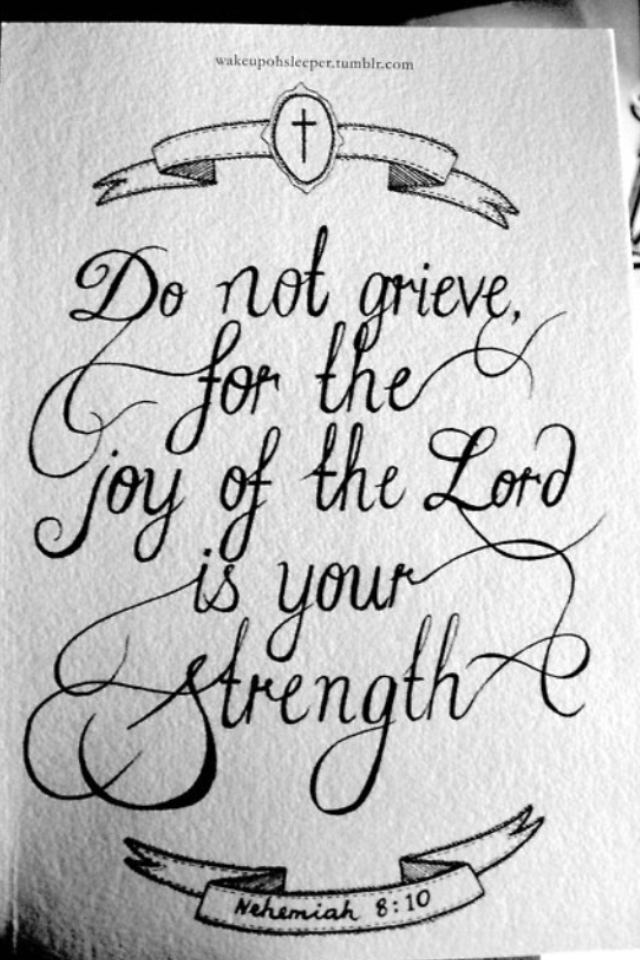 wakeupohsleeper.tumblr.com
Do not grieve,
for the
joy of the Lord
is your
strength
Nehemiah 8:10